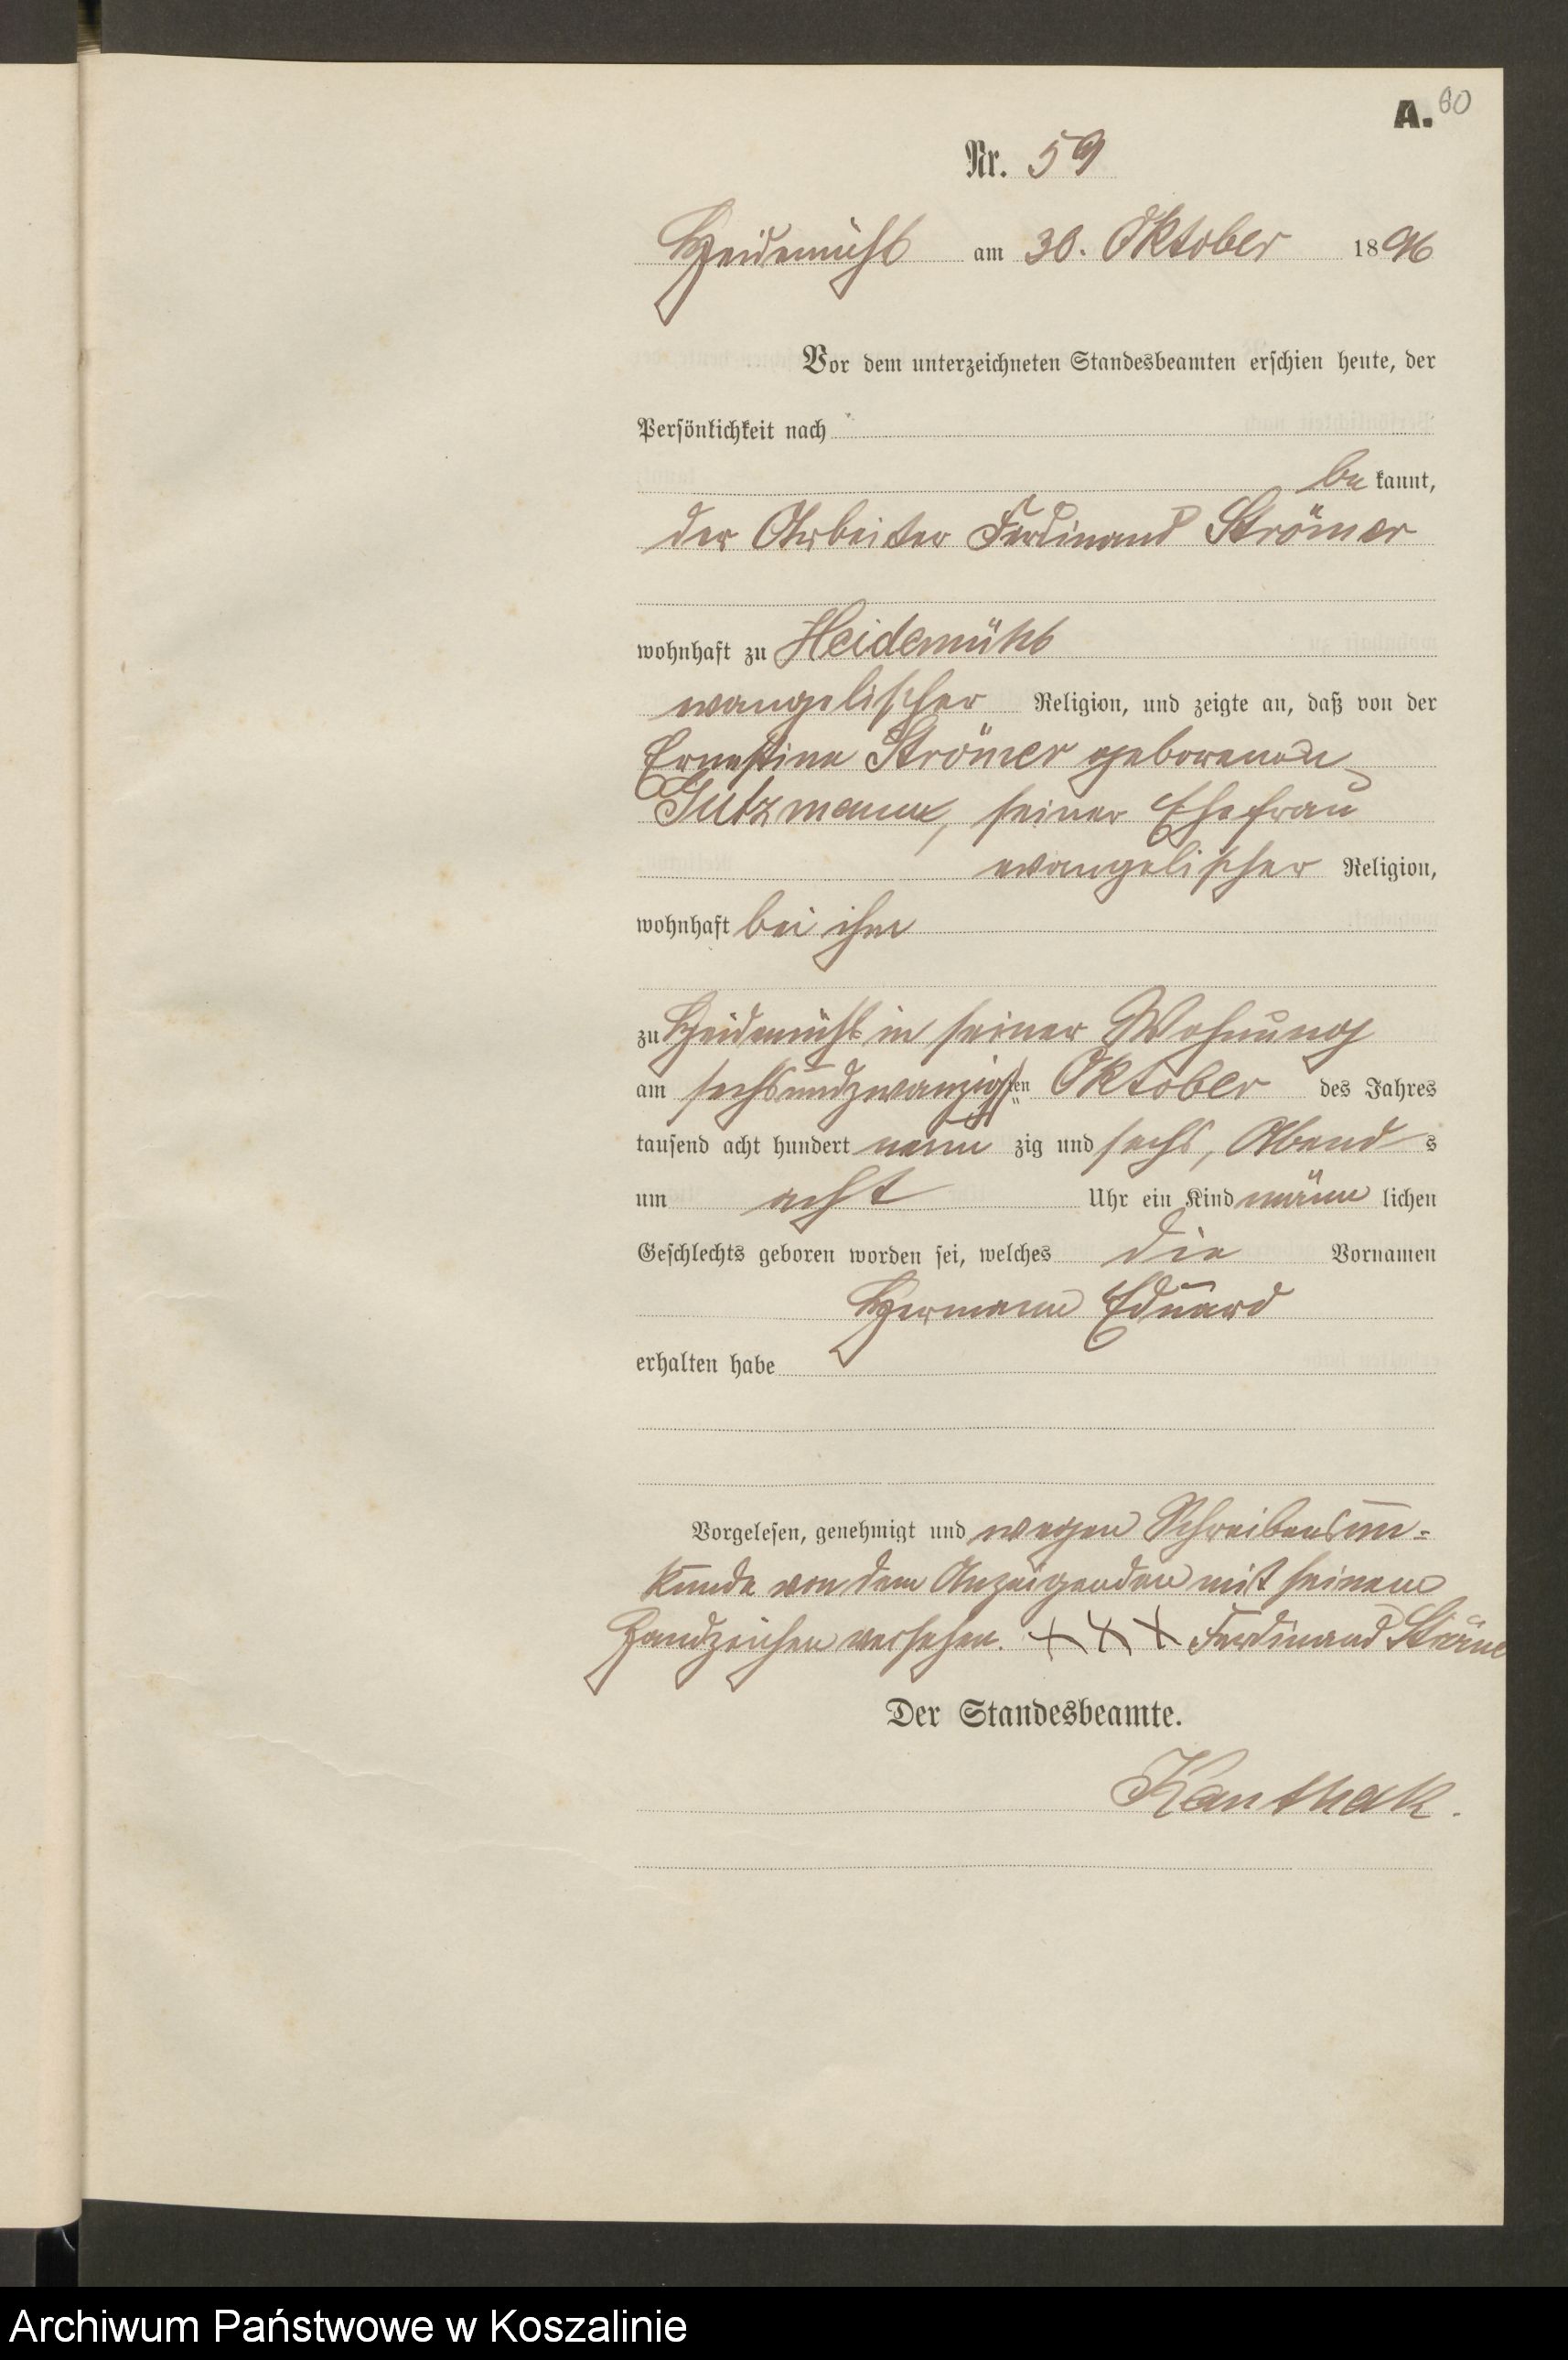 A. 60
Nr. 59
Heidemühl am 30. Oktober 1896
Vor dem unterzeichneten Standesbeamten erschien heute, der
Persönlichkeit nach
be kannt,
der Arbeiter Ferdinand Strömer
wohnhaft zu Heidemühl
evangelischer Religion, und zeigte an, daß von der
Ernestine Strömer geborenen
Gutzmann, seiner Ehefrau
evangelischer Religion,
wohnhaft bei ihm
zu Heidemühl in seiner Wohnung
am sechsundzwanzigsten Oktober des Jahres
tausend acht hundert neun zig und sechs, Abend s
um acht Uhr ein Kind männ lichen
Geschlechts geboren worden sei, welches die Vornamen
Hermann Eduard
erhalten habe
Vorgelesen, genehmigt und wegen Schreibensun-
kunde von dem Anzeigenden mit seinem
Handzeichen versehen. +++ Ferdinand Ströme
Der Standesbeamte.
Kanthak.
Archiwum Państwowe w Koszalinie